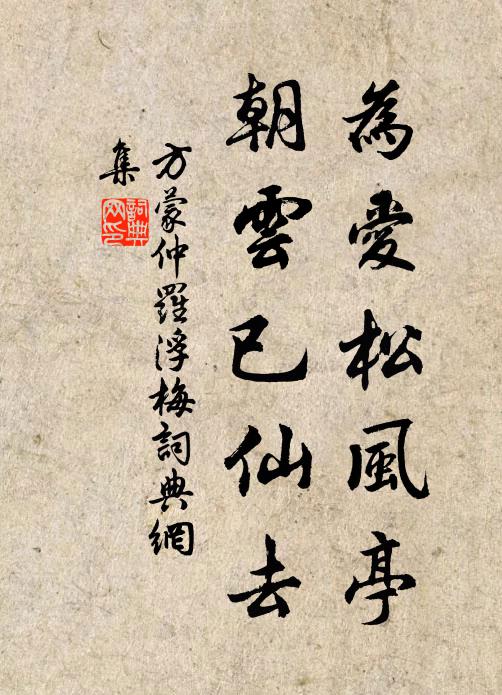 為愛松風亭
朝雲已仙去
方蒙仲羅浮梅詞典網
集
詞典網印